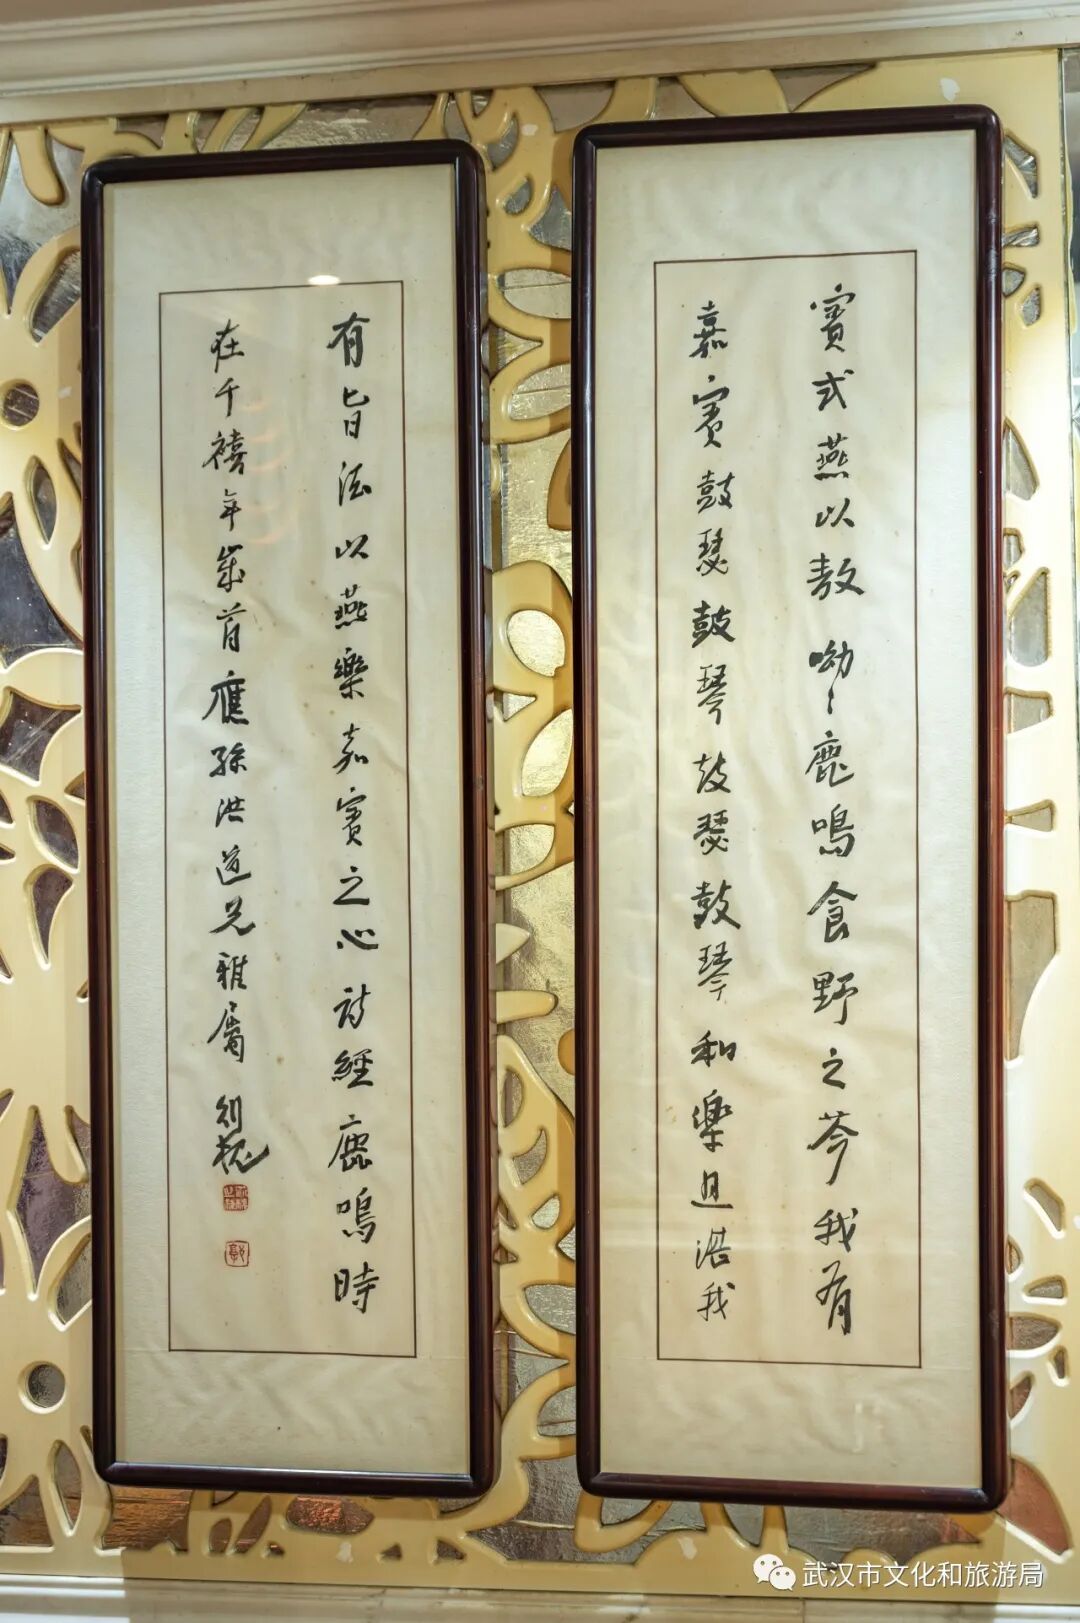 賓式燕以敖呦〻鹿鳴食野之芩我有
嘉賓鼓瑟鼓琴鼓瑟鼓琴和樂且湛我
有旨酒以燕樂嘉賓之心詩經鹿鳴時
在千禧年歲首應孫洪道兄雅屬
武汉市文化和旅游局